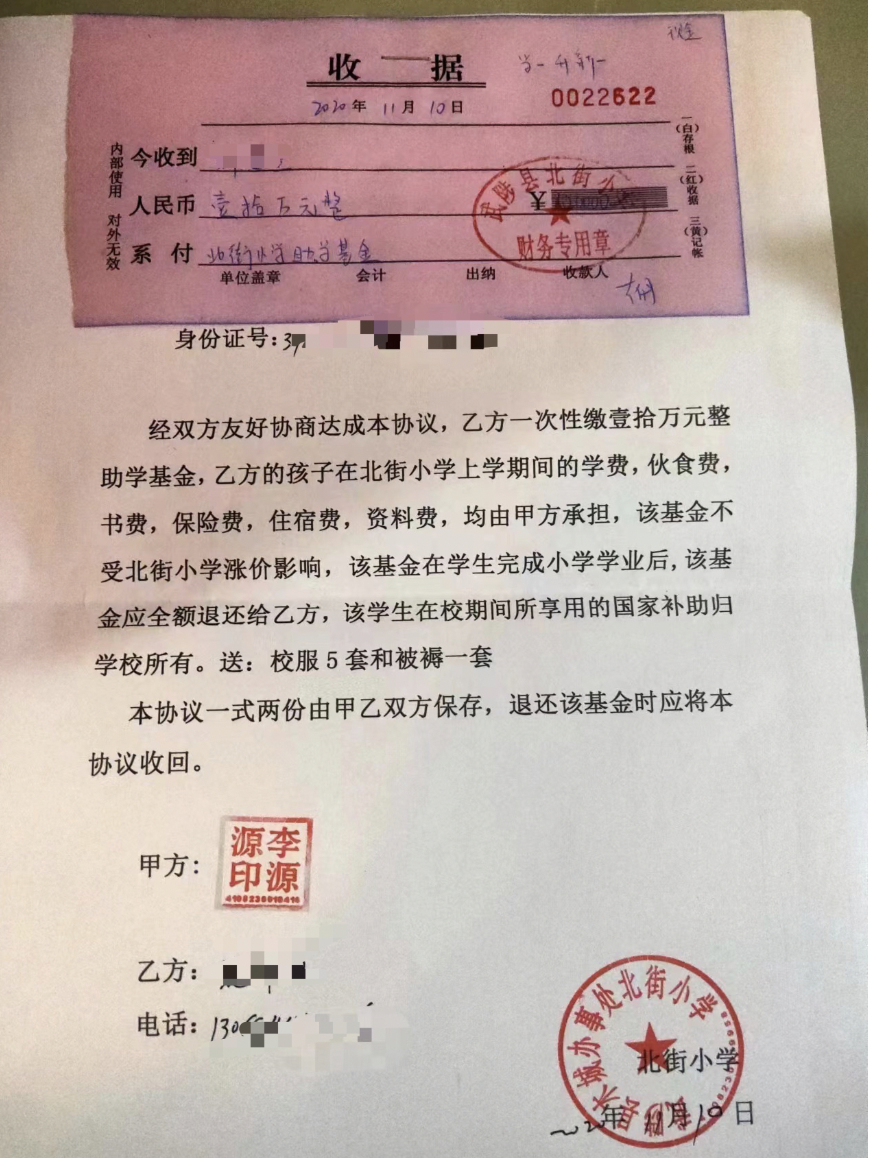 收据
2020年11月10日
0022622
今收到
人民币 壹拾万元整
￥
系付 北街小学助学基金
单位盖章 会计 出纳 收款人
内部使用 对外无效
(一白)存根 (二红)收据 (三黄)记帐
武陟县北街小
财务专用章
身份证号:
经双方友好协商达成本协议，乙方一次性缴壹拾万元整
助学基金，乙方的孩子在北街小学上学期间的学费，伙食费，
书费，保险费，住宿费，资料费，均由甲方承担，该基金不
受北街小学涨价影响，该基金在学生完成小学学业后,该基
金应全额退还给乙方，该学生在校期间所享用的国家补助归
学校所有。送：校服5套和被褥一套
本协议一式两份由甲乙双方保存，退还该基金时应将本
协议收回。
甲方:
李源源印
乙方:
电话: 130
武陟县木城办事处北街小学
北街小学
2020年11月10日